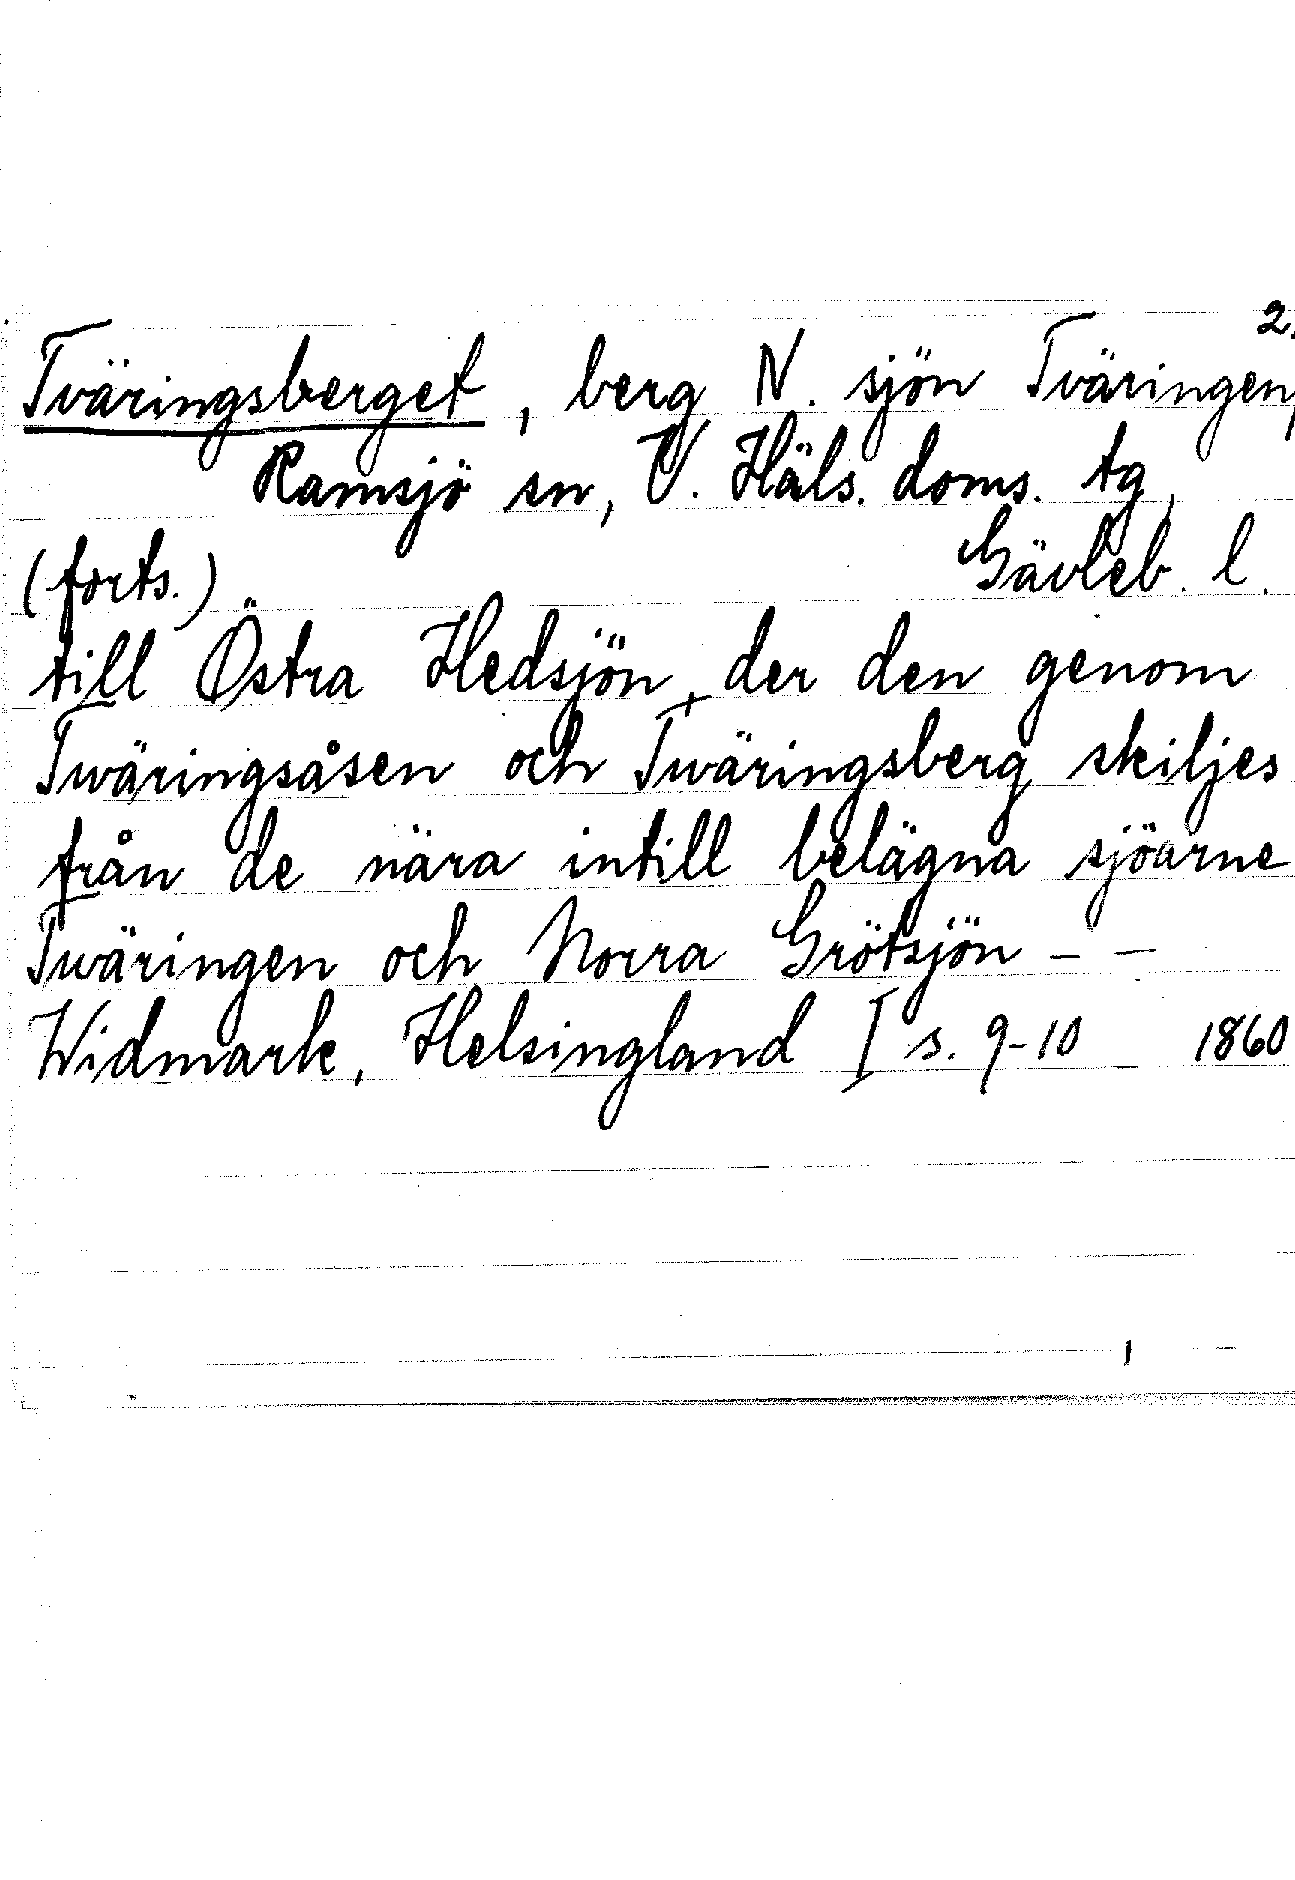 2.
Tväringsberget, berg N. sjön Tväringen,
Ramsjö sn, V. Häls. doms. tg,
(forts.) Gävleb. l.
till Östra Hedsjön, der den genom
Twäringsåsen och Twäringsberg skiljes
från de nära intill belägna sjöarne
Twäringen och Norra Grötsjön – –
Widmark, Helsingland I s. 9-10 1860